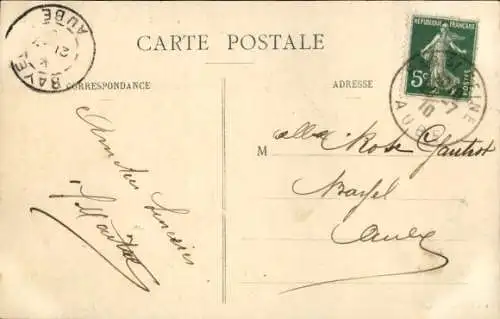 CARTE POSTALE
CORRESPONDANCE
ADRESSE
REPUBLIQUE FRANÇAISE
5c
POSTES
BAYEL
AUBE
21
AUBE
7
10
Amitiés sincères
M
elle Rose Gautrot
Bayel
Aube